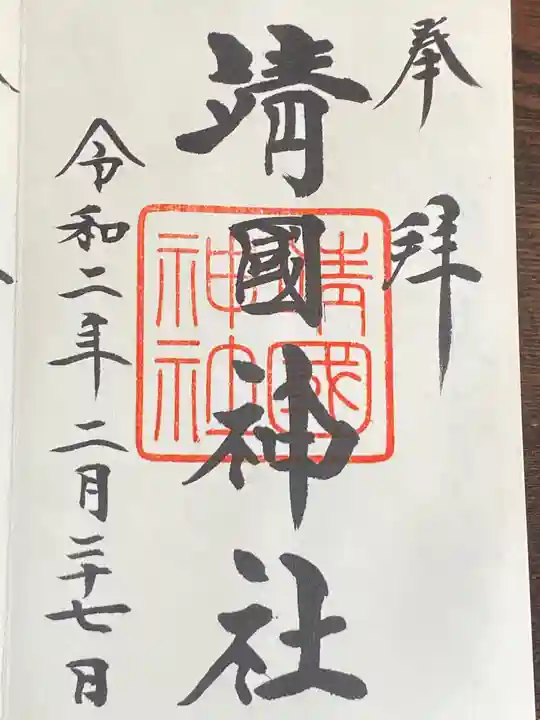 奉拝
靖國神社
靖國神社
令和二年二月二十七日